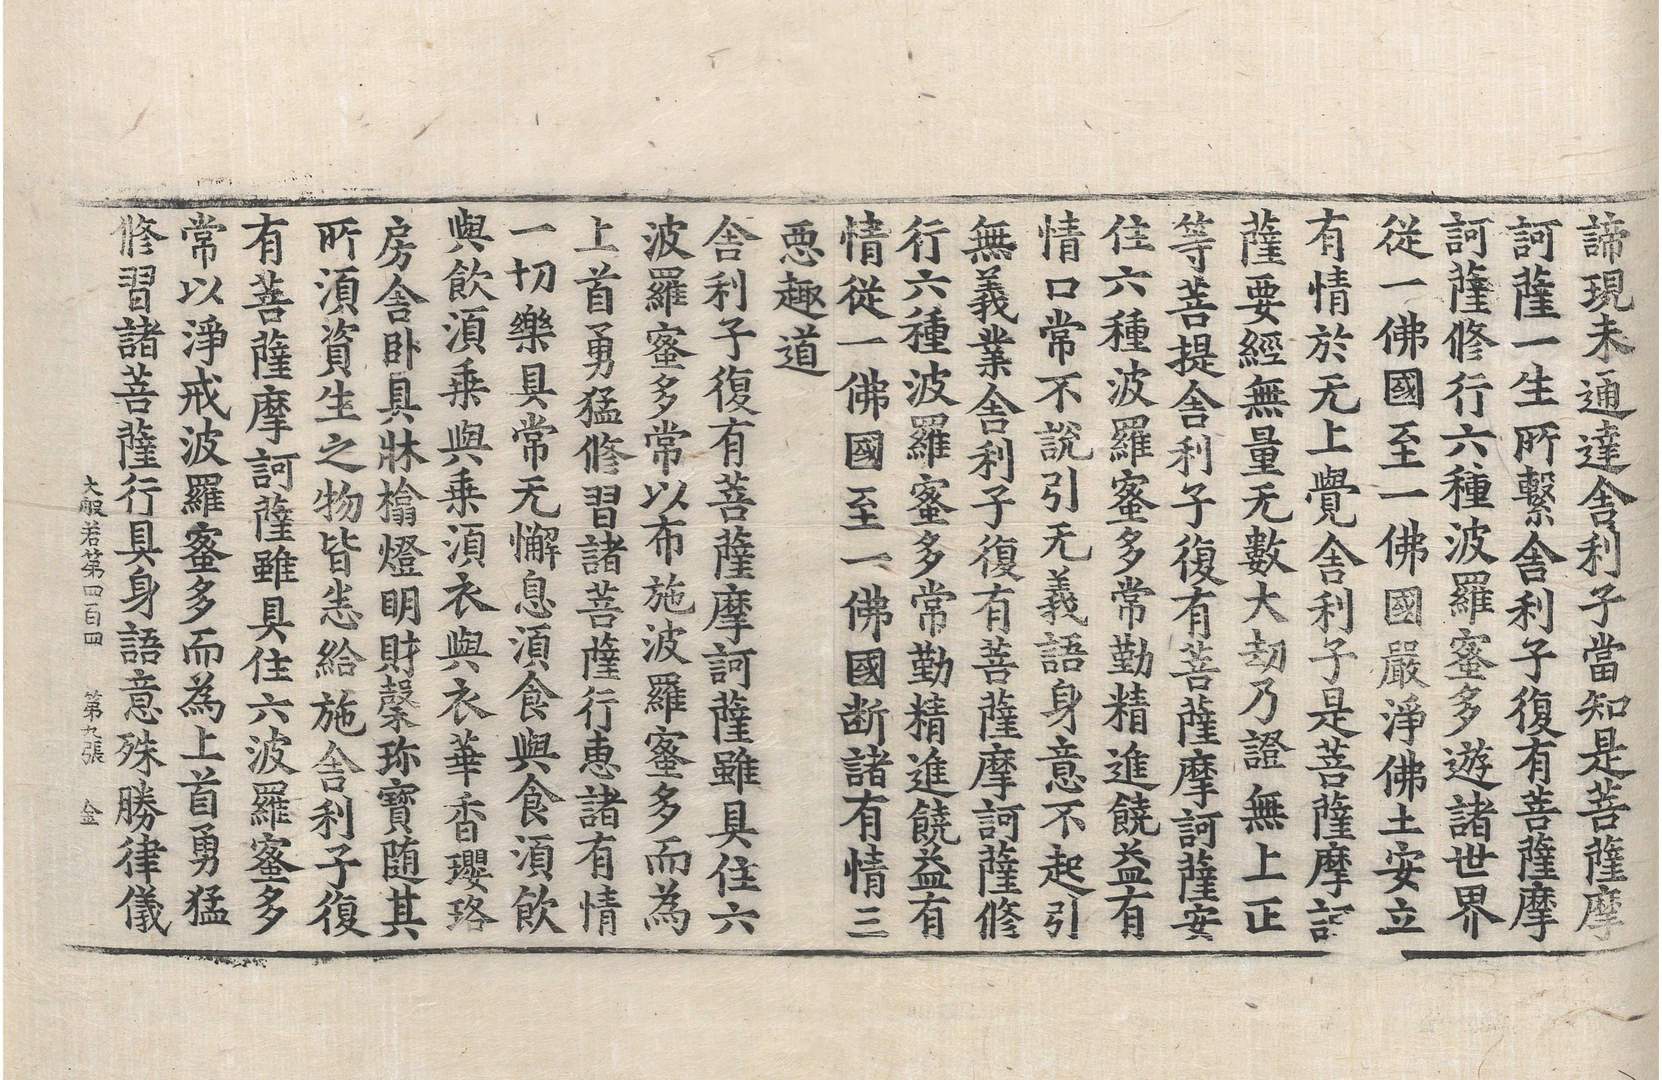 諦現未通達舍利子當知是菩薩摩
訶薩一生所繫舍利子復有菩薩摩
訶薩修行六種波羅蜜多遊諸世界
從一佛國至一佛國嚴淨佛土安立
有情於无上覺舍利子是菩薩摩訶
薩要經無量无數大劫乃證無上正
等菩提舍利子復有菩薩摩訶薩安
住六種波羅蜜多常勤精進饒益有
情口常不說引无義語身意不起引
無義業舍利子復有菩薩摩訶薩修
行六種波羅蜜多常勤精進饒益有
情從一佛國至一佛國断諸有情三
惡趣道
舍利子復有菩薩摩訶薩雖具住六
波羅蜜多常以布施波羅蜜多而為
上首勇猛修習諸菩薩行惠諸有情
一切樂具常无懈息湏食與食湏飲
與飲湏乗與乗湏衣與衣華香瓔珞
房舍卧具牀榻燈明財糓珎寳随其
所湏資生之物皆悉給施舍利子復
有菩薩摩訶薩雖具住六波羅蜜多
常以淨戒波羅蜜多而為上首勇猛
修習諸菩薩行具身語意殊勝律儀
大般若第四百四 第九張 金